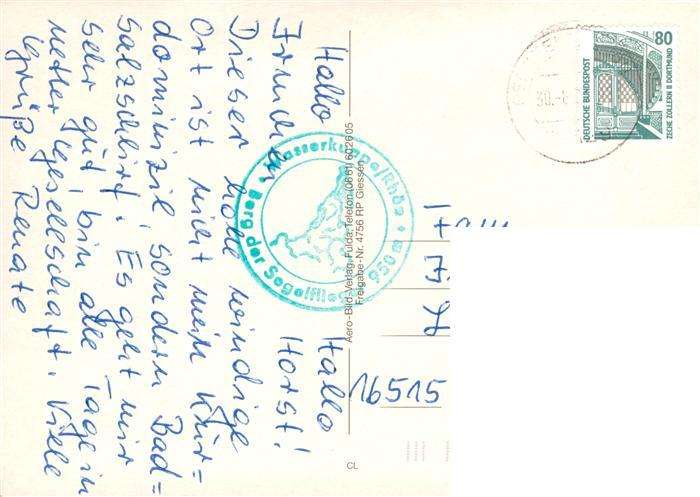 Hallo Hallo
Irmchen Horst!
Dieser hohe windige
Ort ist nicht mein Kur=
dominizil sondern Bad-
salzschlirf. Es geht mir
sehr gut, bin alle Tage in
netter Gesellschaft. Viele
Grüße Renate
Wasserkuppe/Rhön • 950 m •
Berg der Segelflieger
Aero-Bild-Verlag, Fulda, Telefon (0661) 602605
Freigabe-Nr. 4756 RP Giessen
CL
80
DEUTSCHE BUNDESPOST
ZECHE ZOLLERN II DORTMUND
30.-8
16515